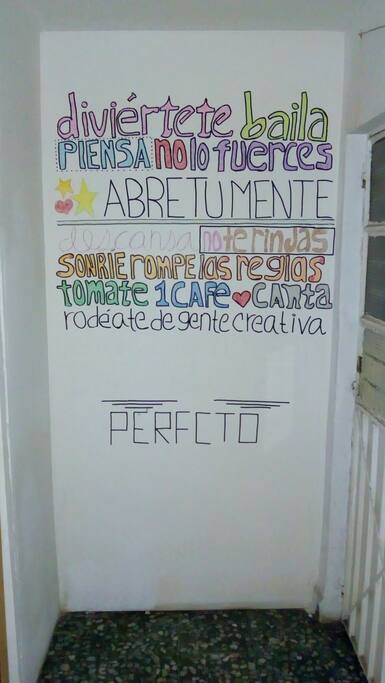 diviértete baila
PIENSA NO lo fuerces
ABRE TU MENTE
descansa no te rindas
SONRIE ROMPE las reglas
tomate 1 CAFE CANta
rodéate de gente creativa
PERFCTO